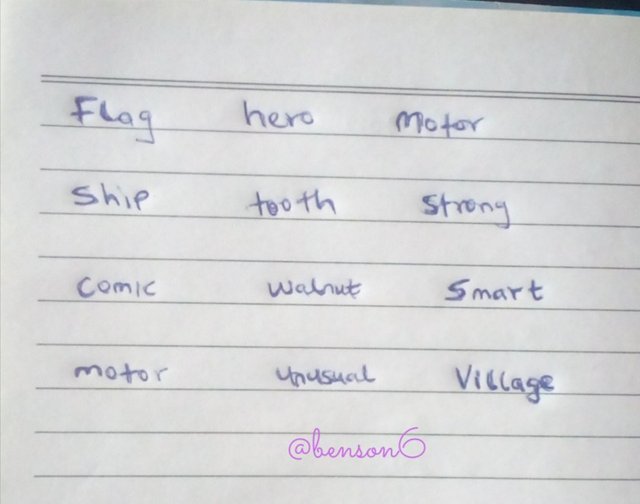 Flag hero Motor
Ship tooth Strong
Comic walnut Smart
motor unusual Village
@benson6